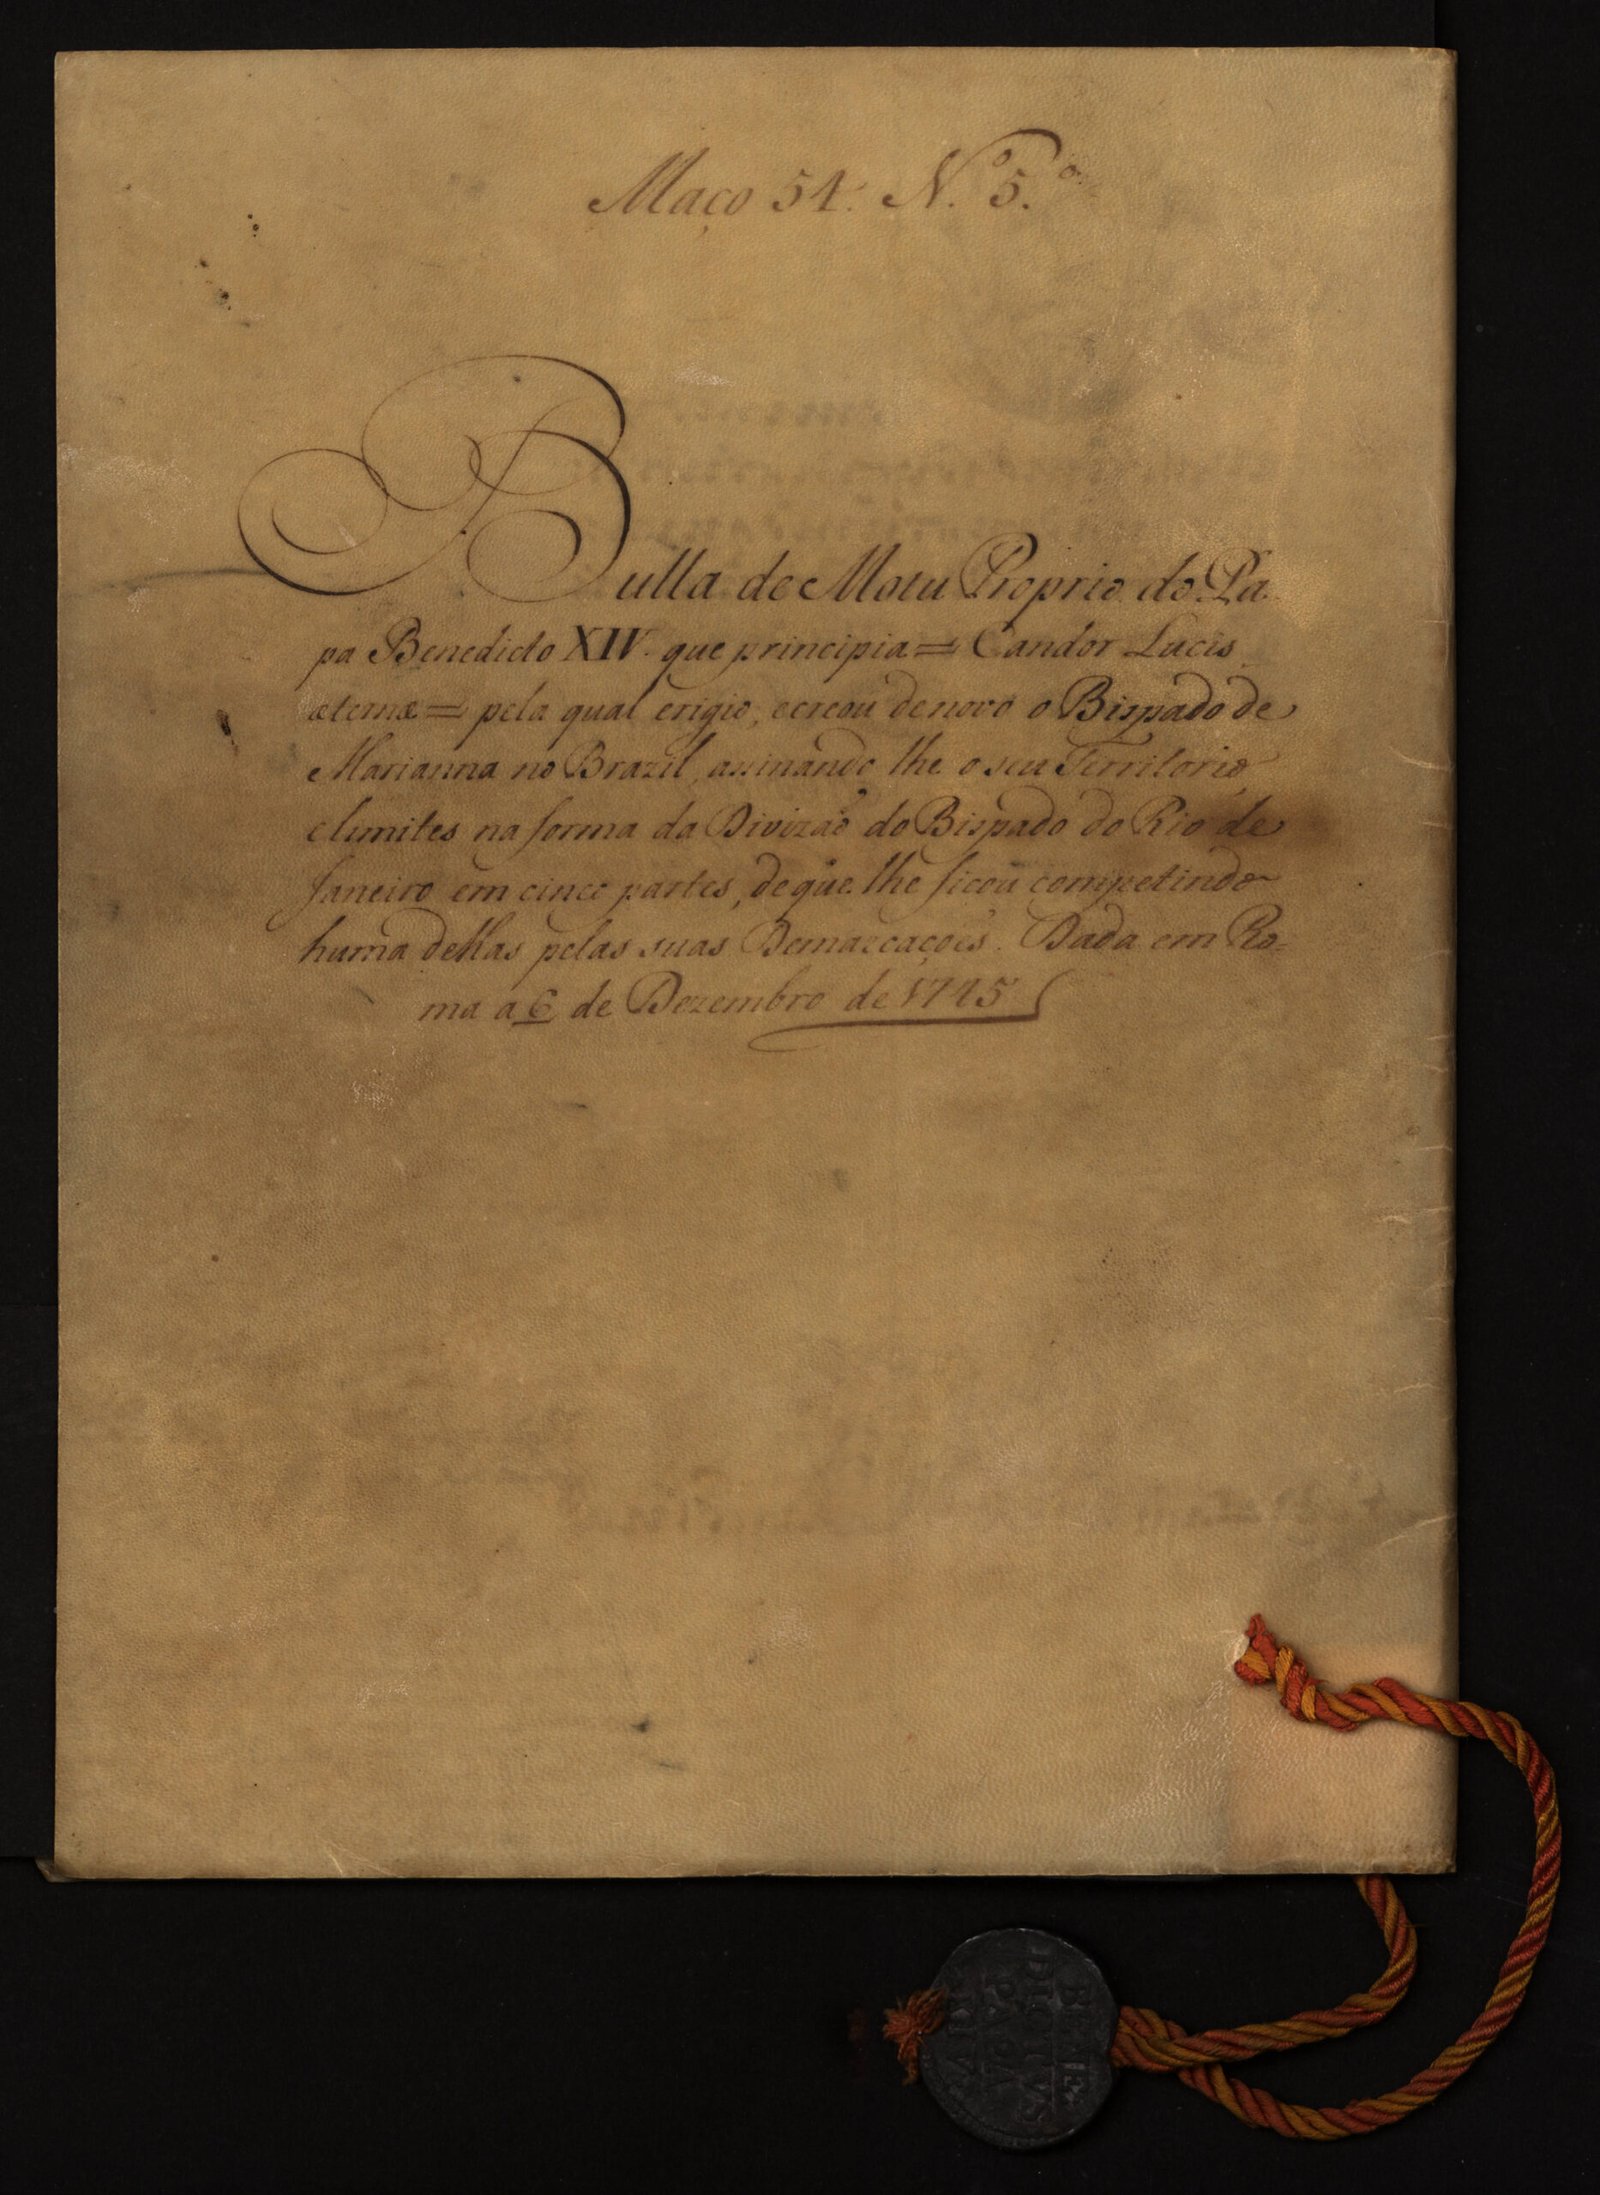 Maço 54. N.º 5.º
Bulla de Motu Proprio do Pa
pa Benedicto XIV. que principia = Candor Lucis
æternæ = pela qual erigio, e creou de novo o Bispado de
Marianna no Brazil, assinando lhe o seu Territorio
e limites na forma da Divizaõ do Bispado do Rio de
Janeiro em cinco partes, de que lhe ficou competindo
huma dellas pelas suas Demarcaçoẽs. Dada em Ro=
ma a 6 de Dezembro de 1745
BENE
DICTVS
PAPA